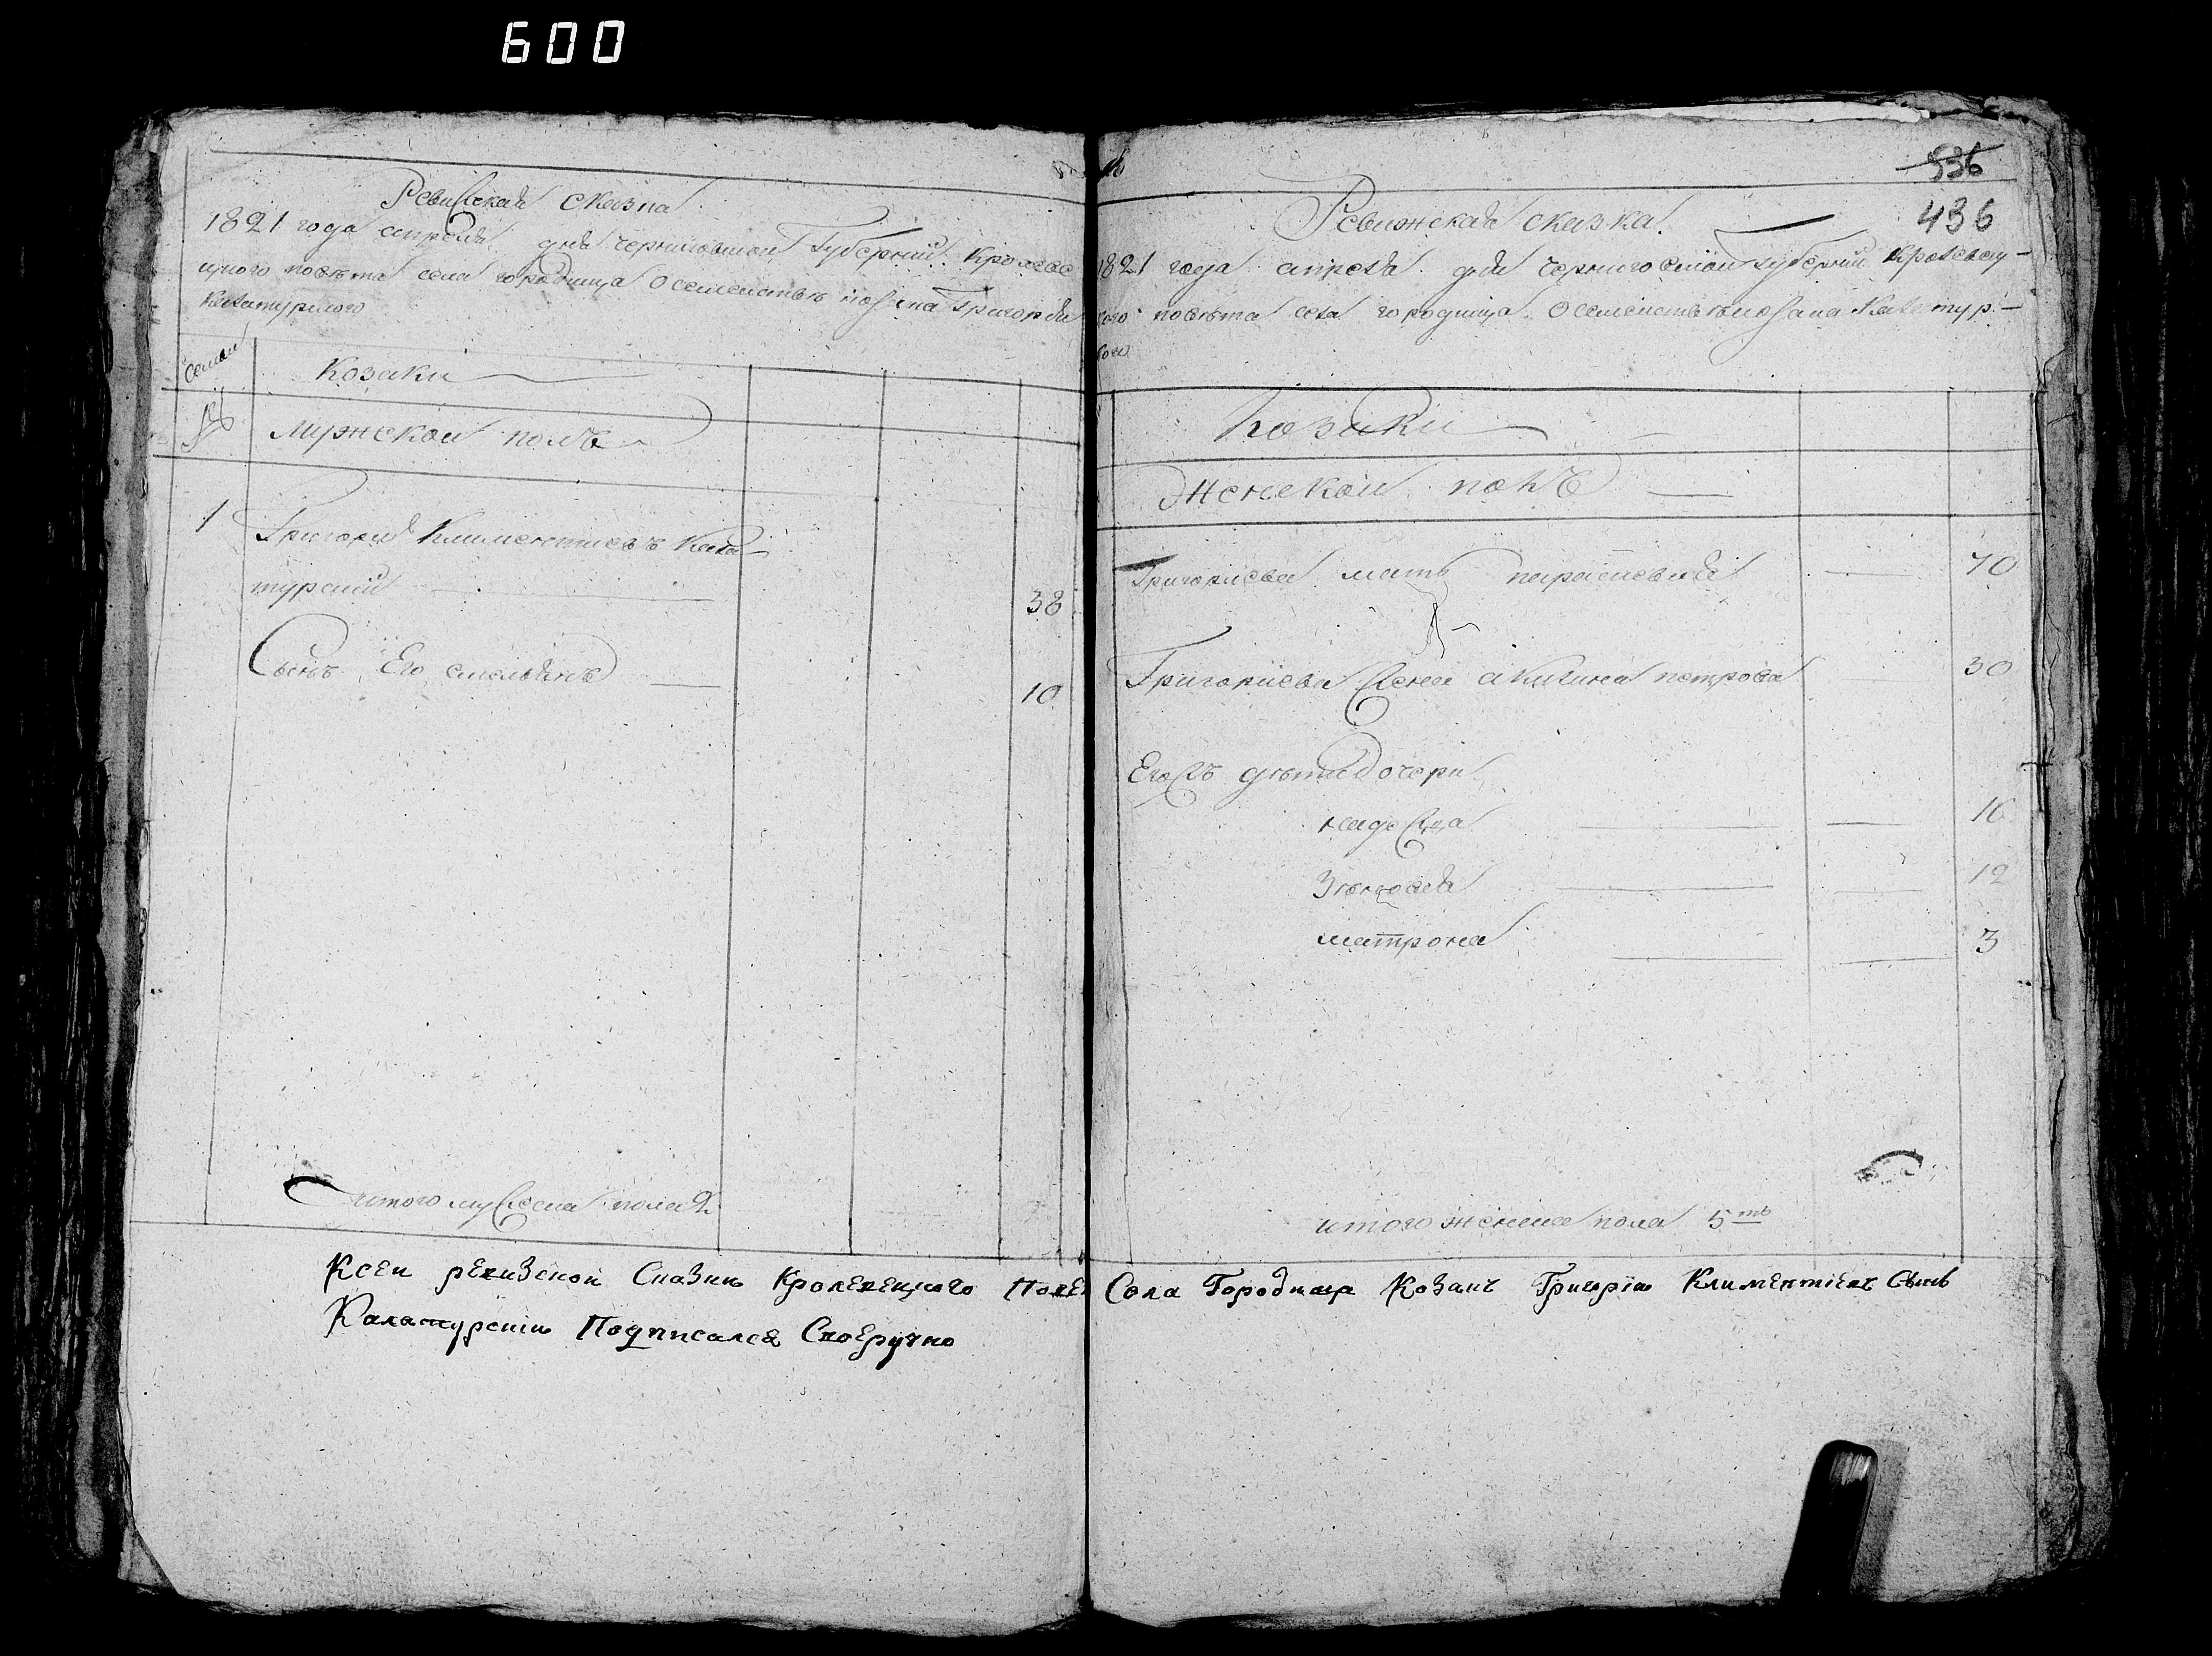 600
Ревижская сказка
1821 года апреля дня черниговской Губернии Кролевец
цкого повета села городища О семействе козака Григорія
Калатурского
семьи
Козаки
№
Мужской полъ
1 Григорий Климентиевъ Кала
турский 38
Сынъ Его емельянъ 10
итого мужеска пола 2
536
436
Ревижская сказка
1821 года апреля дня Черниговской губернии Кролевец
кого повѣта села городища О семействѣ козака Калатур
Козаки
Женской полъ
Григориева мать параскевия 70
Григориева жена акилина петрова 30
Его жъ дѣти дочери
надежда 16
Зѣновія 12
матрона 3
итого женска пола 5ть
Ксеи ревизской Сказки Кролевецкого Повѣ Села Городища Козакъ Григорій Климентіевъ Сынъ
Калатурскій Подписался Своеручно